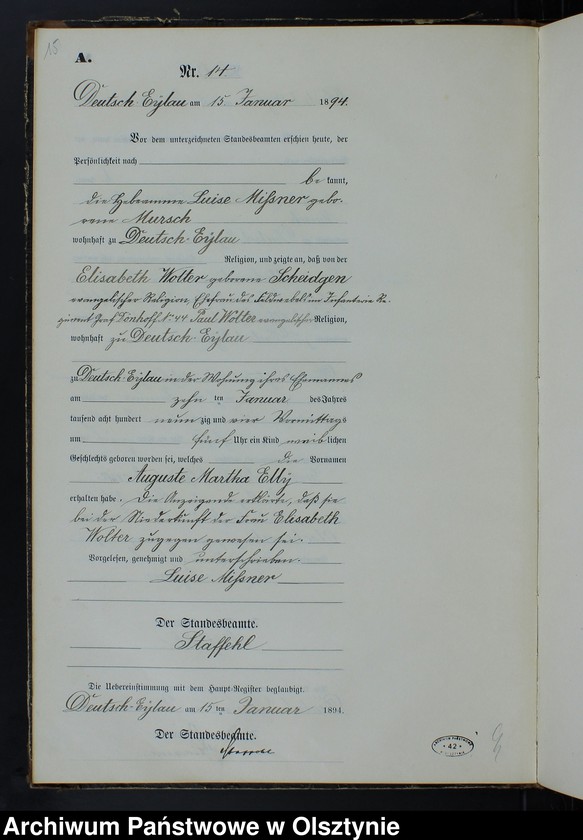 15
A.
Nr. 14
Deutsch-Eylau am 15. Januar 1894.
Vor dem unterzeichneten Standesbeamten erschien heute, der
Persönlichkeit nach
be kannt,
die Hebeamme Luise Missner gebo-
rene Mursch
wohnhaft zu Deutsch-Eylau
Religion, und zeigte an, daß von der
Elisabeth Wolter geborene Scheidgen
evangelischer Religion, Ehefrau des Feldwebels im Infanterie Re-
giment Graf Dönhoff N. 44 Paul Wolter evangelischer Religion,
wohnhaft zu Deutsch-Eylau
zu Deutsch-Eylau in der Wohnung ihres Ehemannes
am zehn ten Januar des Jahres
tausend acht hundert neun zig und vier Vormittags
um fünf Uhr ein Kind weib lichen
Geschlechts geboren worden sei, welches die Vornamen
Auguste Martha Elly
erhalten habe. Die Anzeigende erklärte, daß sie
bei der Niederkunft der Frau Elisabeth
Wolter zugegen gewesen sei.
Vorgelesen, genehmigt und unterschrieben.
Luise Missner
Der Standesbeamte.
Staffehl
Die Uebereinstimmung mit dem Haupt-Register beglaubigt.
Deutsch-Eylau am 15 ten Januar 1894.
Der Standesbeamte.
42
Archiwum Państwowe w Olsztynie